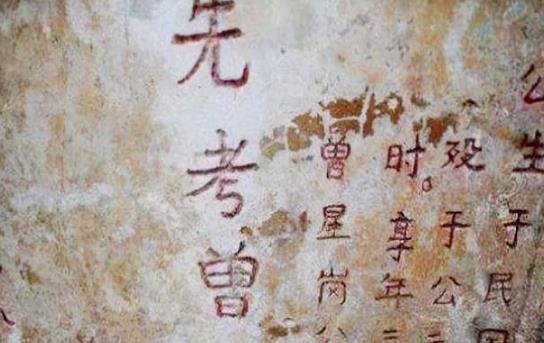 公生于民国
殁于公
时。享年
曾星岗公
先考曾